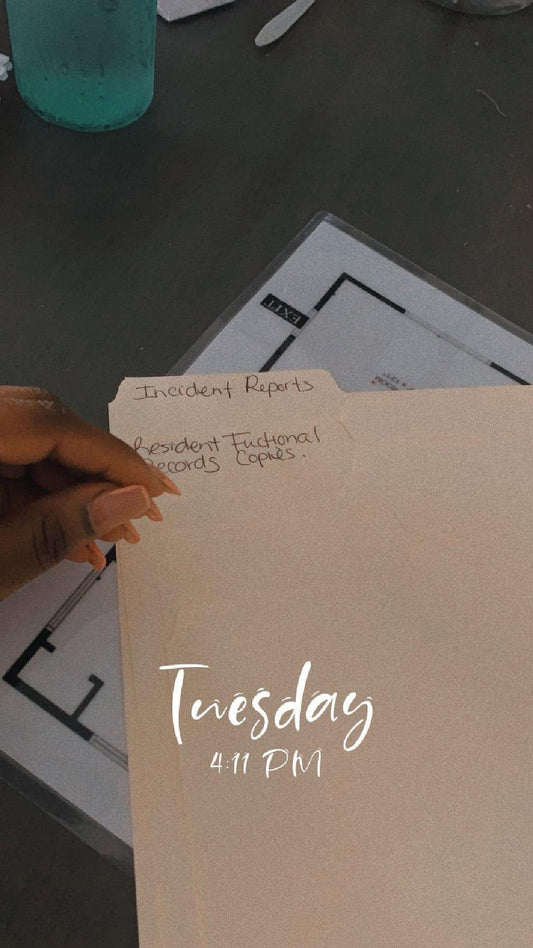 EXIT
Incident Reports
Resident Fuctional
Records Copies.
Tuesday
4:11 PM